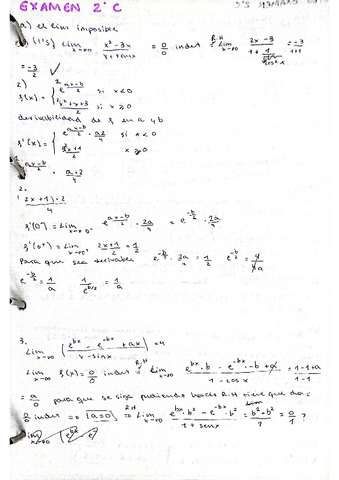 EXAMEN 2º C
a) el lim imposible
(1's) lim x→0 x²-3x / x+tanx = 0/0 indet R.H = lim x→0 2x-3 / 1+1/cos²x = -3/1+1
= -3/2 ✓
2)
f(x) = { e^(ax-b)/2 si x<0
x²+x+3/2 si x≥0
derivabilidad de f su a y b
f'(x) = { e^(ax-b)/2 · a2/4 si x<0
2x+1/2 x≥0
ax-b/2 a·2/4
2.
(2x+1)·2/4
f'(0⁻) = lim x→0⁻ e^(ax-b)/2 · 2a/4 = e^(-b/2) · 2a/4
f'(0⁺) = lim x→0⁺ 2x+1/2 = 1/2
Para que sea derivable e^(-b/2) · 2a/4 = 1/2 e^(-b/2) = 4/4a
e^(-b/2) = 1/a 1/e^(b/2) = 1/a
3.
lim x→0 ( e^(bx) - e^(-bx) + ax / x - sinx ) = 4
lim x→0 f(x) = 0/0 indet R.H = lim x→0 e^(bx)·b - e^(-bx)·-b+a / 1-cosx = 1-1+a / 1-1
= a/0 para que se siga pudiendo hacer R.H tiene que dar
0/0 indet => [a=0] R.H => lim x→0 e^(bx)·b² - e^(-bx)·b² / 1+senx = b²-b²/1 = 0/1 ?
lim x→0